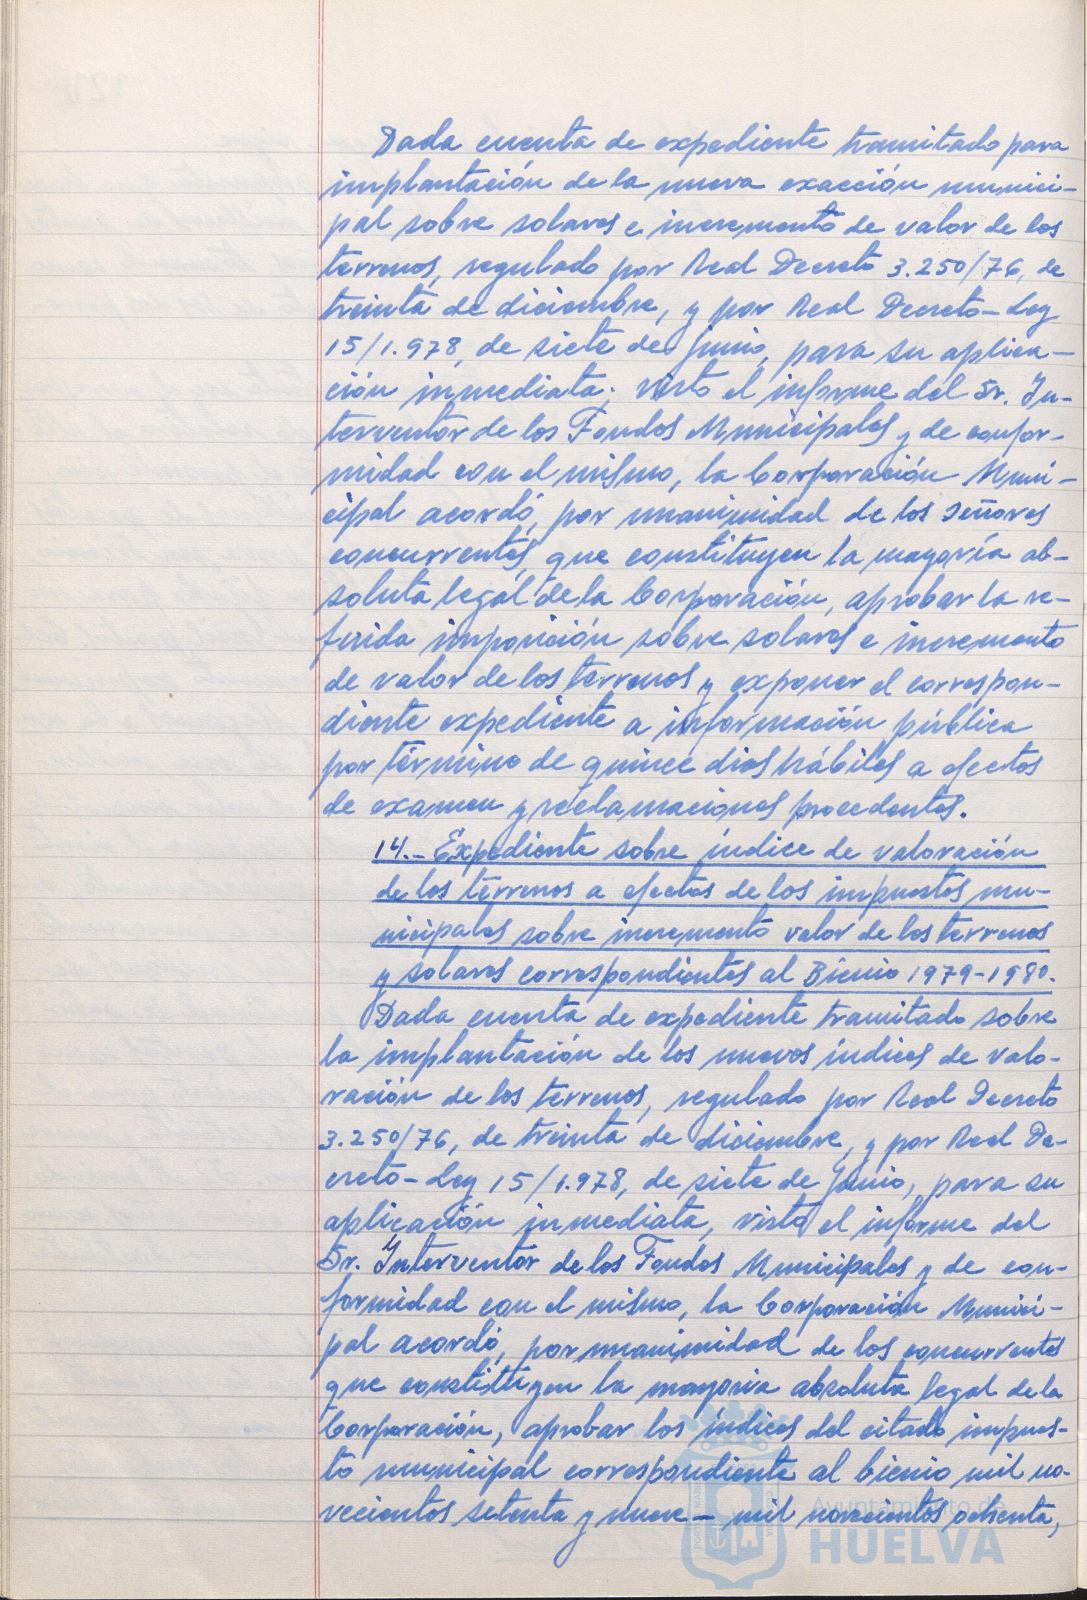 Dada cuenta de expediente tramitado para
implantación de la nueva exacción munici-
pal sobre solares e incremento de valor de los
terrenos, regulado por Real Decreto 3.250/76, de
treinta de diciembre, y por Real Decreto-Ley
15/1.978, de siete de Junio, para su aplica-
ción inmediata; visto el informe del Sr. In-
terventor de los Fondos Municipales y de confor-
midad con el mismo, la Corporación Muni-
cipal acordó, por unanimidad de los señores
concurrentes, que constituyen la mayoría ab-
soluta legal de la Corporación, aprobar la re-
ferida imposición sobre solares e incremento
de valor de los terrenos y exponer el correspon-
diente expediente a información pública
por término de quince dias hábiles a efectos
de examen y reclamaciones procedentes.
14.- Expediente sobre índice de valoración
de los terrenos a efectos de los impuestos mu-
nicipales sobre incremento valor de los terrenos
y solares correspondientes al Bienio 1979-1980.
Dada cuenta de expediente tramitado sobre
la implantación de los nuevos índices de valo-
ración de los terrenos, regulado por Real Decreto
3.250/76, de treinta de diciembre, y por Real De-
creto-Ley 15/1.978, de siete de Junio, para su
aplicación inmediata, visto el informe del
Sr. Interventor de los Fondos Municipales y de con-
formidad con el mismo, la Corporación Munici-
pal acordó, por unanimidad de los concurrentes
que constituyen la mayoria absoluta legal de la
Corporación, aprobar los índices del citado impues-
to municipal correspondiente al bienio mil no-
vecientos setenta y nueve - mil novecientos ochenta,
Ayuntamiento de
HUELVA